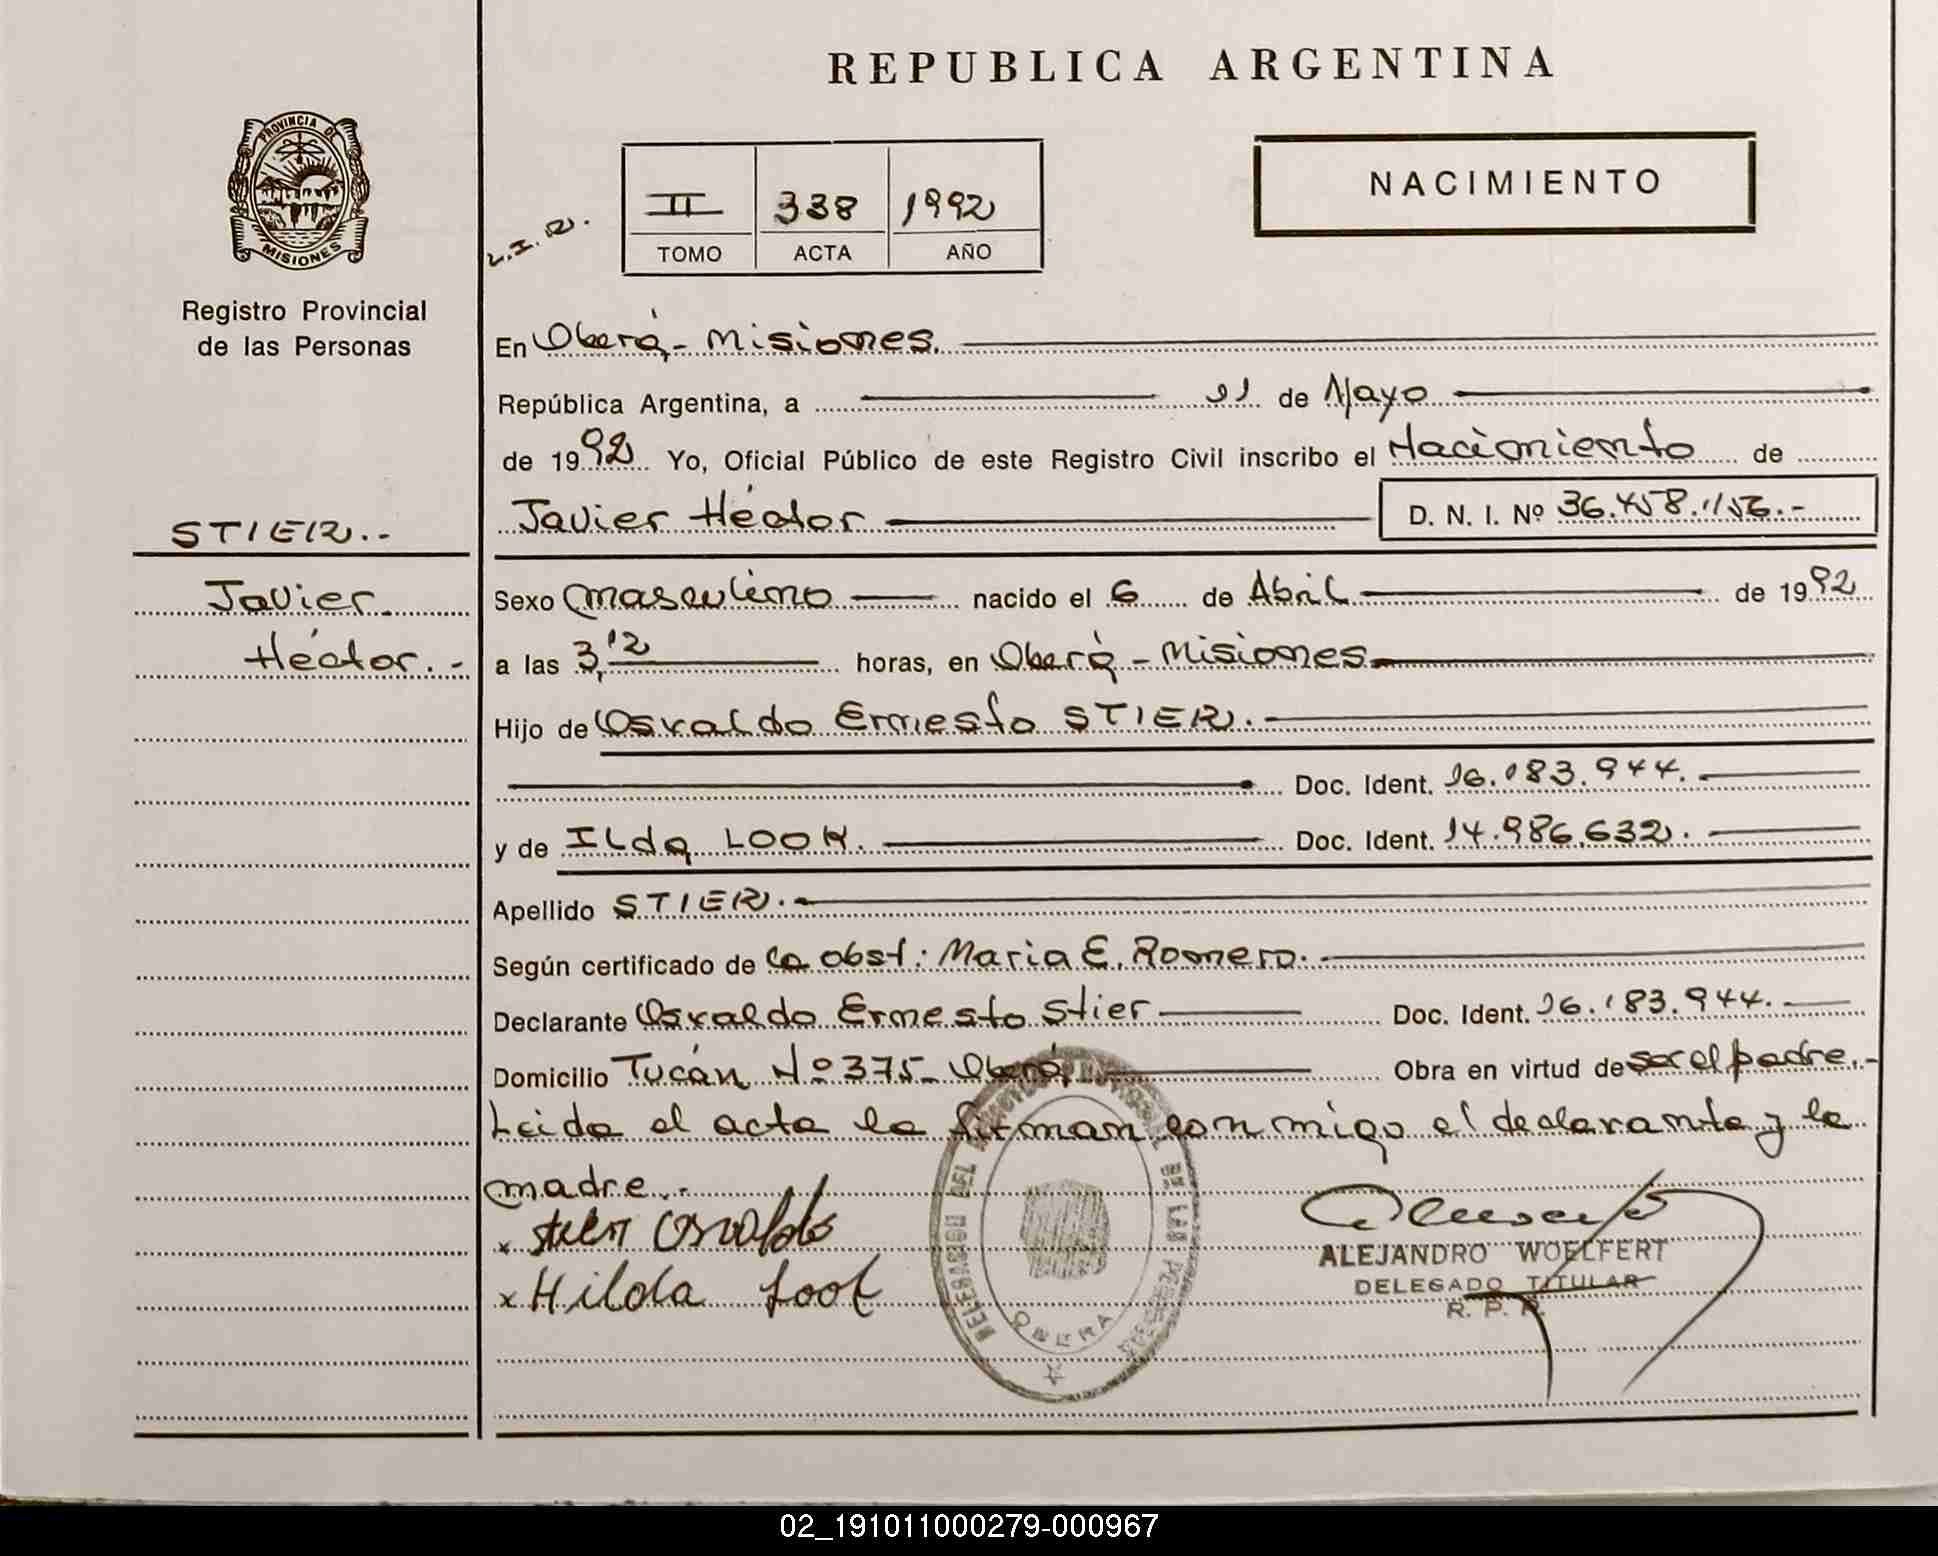 REPUBLICA ARGENTINA
PROVINCIA DE
MISIONES
Registro Provincial
de las Personas
L.I.R.
II 338 1992
TOMO ACTA AÑO
NACIMIENTO
En Oberá - Misiones.
República Argentina, a 11 de Mayo
de 1992 Yo, Oficial Público de este Registro Civil inscribo el Nacimiento de
Javier Héctor D. N. I. Nº 36.458.156.-
STIER.-
Javier
Héctor.-
Sexo masculino nacido el 6 de Abril de 1992
a las 3,12 horas, en Oberá - Misiones
Hijo de Osvaldo Ernesto STIER.
Doc. Ident. 16.183.944.
y de ILda LOOK. Doc. Ident. 14.986.632.
Apellido STIER.
Según certificado de la obst: Maria E. Romero.
Declarante Osvaldo Ernesto Stier Doc. Ident. 16.183.944.
Domicilio Tucán Nº 375 - Oberá Obra en virtud de ser el padre.-
Leida el acta la firman conmigo el declarante y la
madre..-
x Stier Osvaldo
x Hilda Look
ALEJANDRO WOELFERT
DELEGADO TITULAR
R. P. P.
DELEGACION DEL REGISTRO PROVINCIAL DE LAS PERSONAS
OBERA
02_191011000279-000967